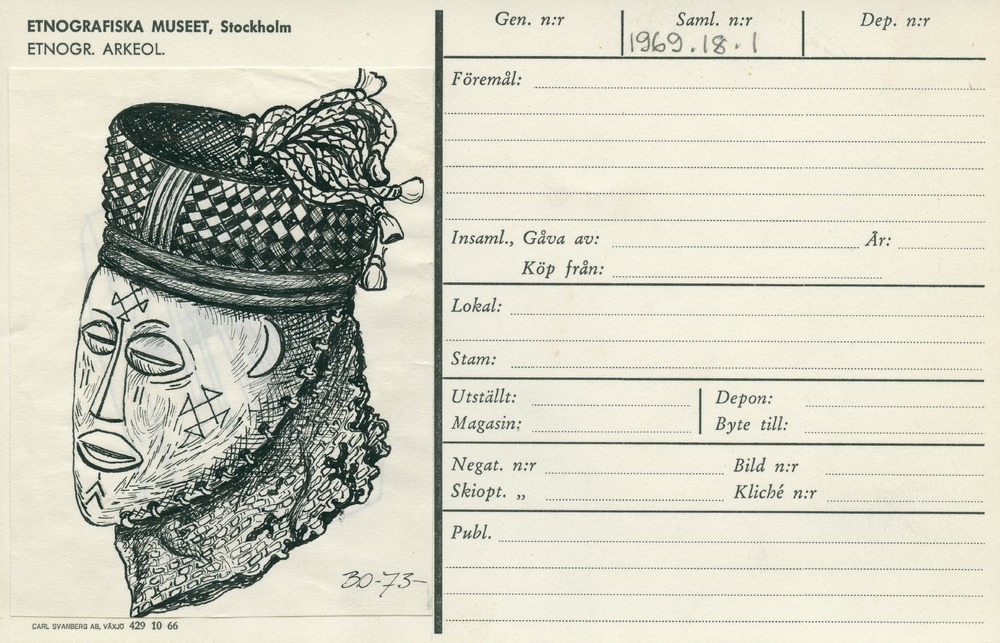 ETNOGRAFISKA MUSEET, Stockholm
ETNOGR. ARKEOL.
BO-73-
CARL SVANBERG AB, VÄXJÖ 429 10 66
Gen. n:r Saml. n:r Dep. n:r
1969.18.1
Föremål:
Insaml., Gåva av: År:
Köp från:
Lokal:
Stam:
Utställt: Depon:
Magasin: Byte till:
Negat. n:r Bild n:r
Skiopt. „ Kliché n:r
Publ.